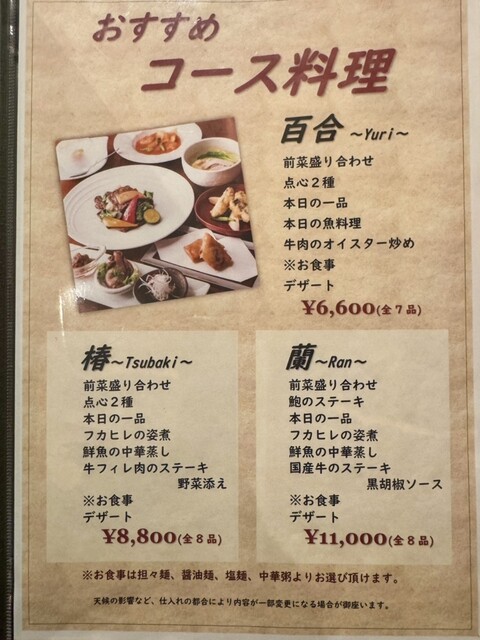 おすすめ
コース料理
百合 ～Yuri～
前菜盛り合わせ
点心２種
本日の一品
本日の魚料理
牛肉のオイスター炒め
※お食事
デザート
¥6,600(全７品)
椿～Tsubaki～
前菜盛り合わせ
点心２種
本日の一品
フカヒレの姿煮
鮮魚の中華蒸し
牛フィレ肉のステーキ
野菜添え
※お食事
デザート
¥8,800(全８品)
蘭～Ran～
前菜盛り合わせ
鮑のステーキ
本日の一品
フカヒレの姿煮
鮮魚の中華蒸し
国産牛のステーキ
黒胡椒ソース
※お食事
デザート
¥11,000(全８品)
※お食事は担々麺、醤油麺、塩麺、中華粥よりお選び頂けます。
天候の影響など、仕入れの都合により内容が一部変更になる場合が御座います。